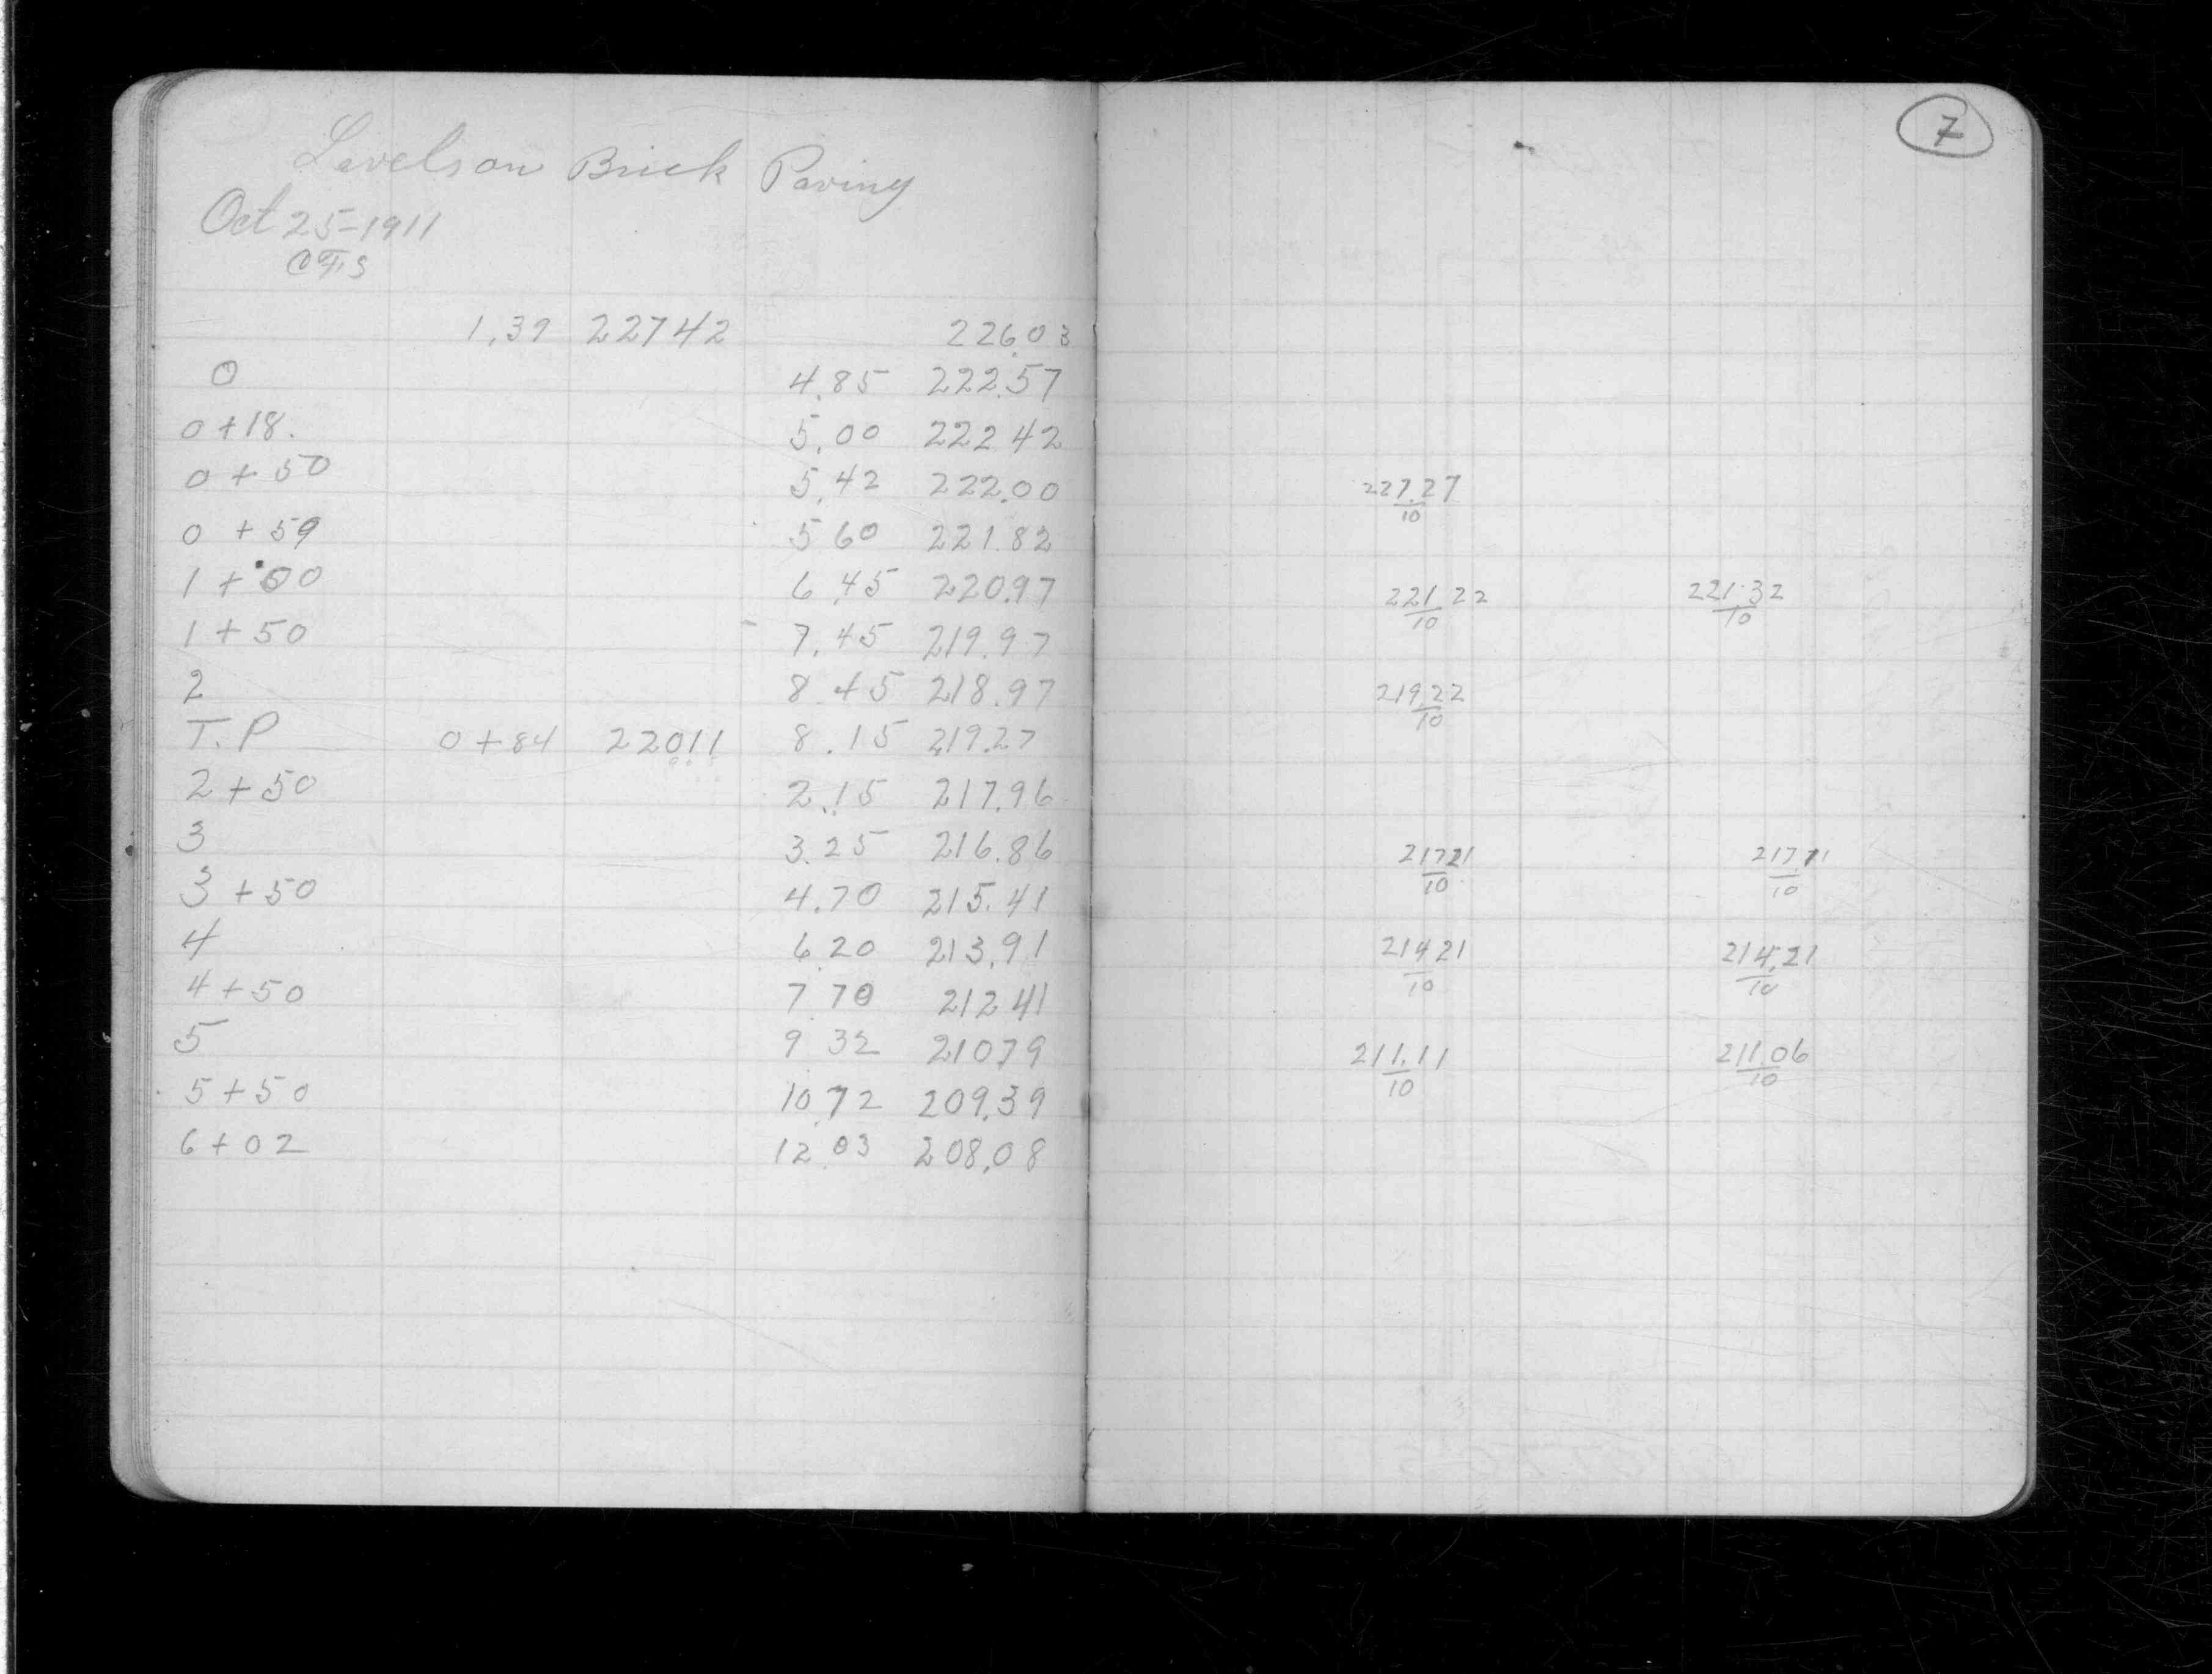 Levels on Brick Paving
Oct 25-1911
CFS
1.39 22742 226.03
0 4.85 222.57
0+18. 5.00 222 42
0+50 5.42 222.00
0+59 5 60 221.82
1+00 6.45 220.97
1+50 7.45 219.97
2 8.45 218.97
T.P 0+84 22011 8.15 219.27
2+50 2.15 217.96
3 3.25 216.86
3+50 4.70 215.41
4 6 20 213.91
4+50 7 70 212 41
5 9 32 210.79
5+50 10.72 209.39
6+02 12.03 208.08
7
227.27
10
221.22 221.32
10 10
219.22
10
21721 217.71
10 10
214 21 214.21
10 10
211.11 211.06
10 10